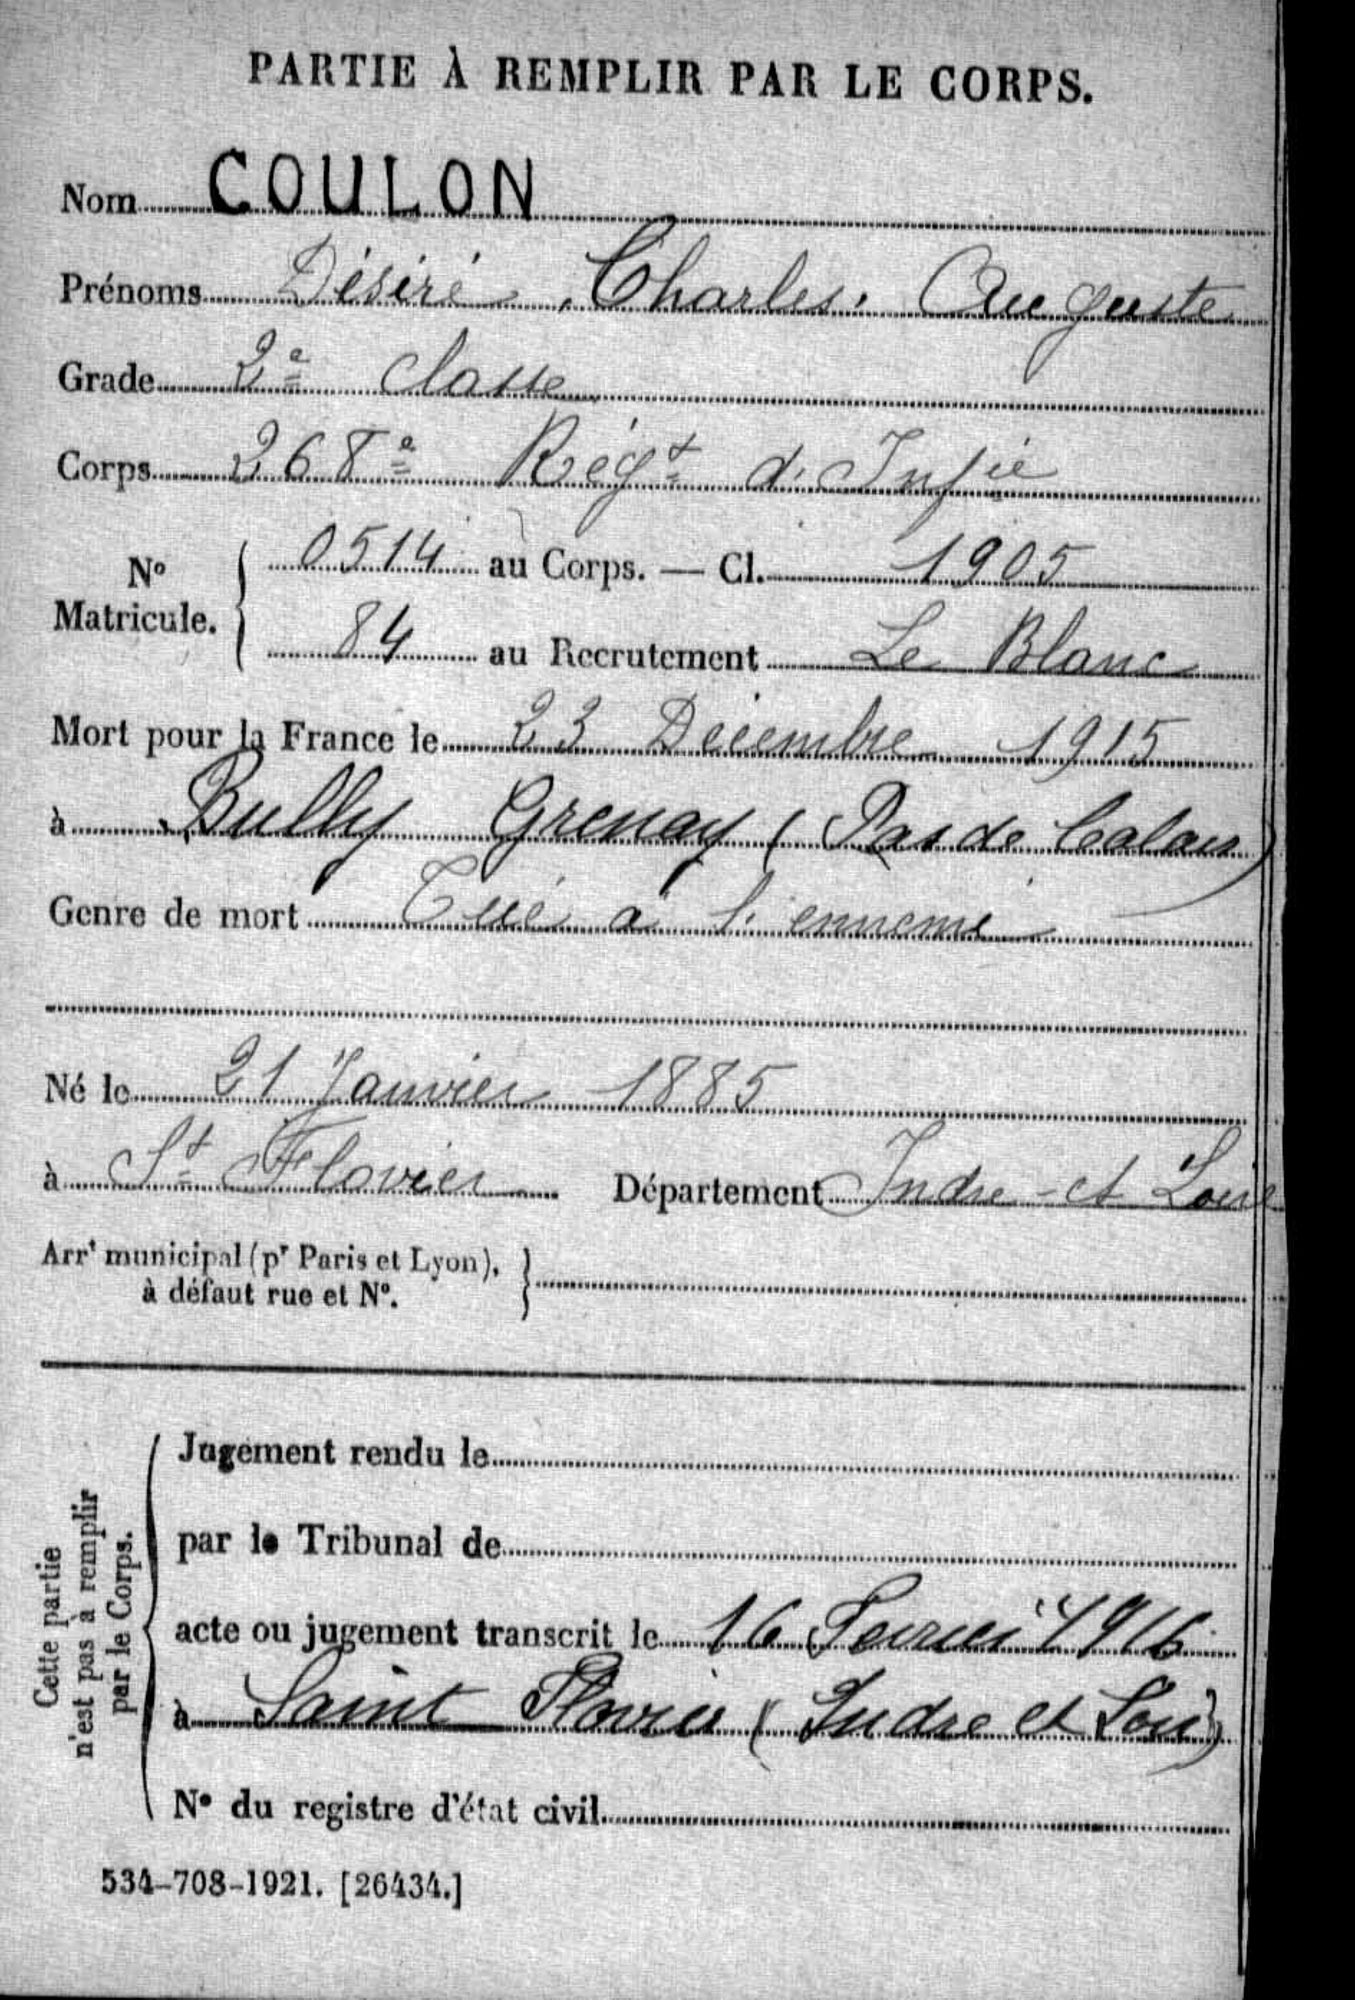 PARTIE À REMPLIR PAR LE CORPS.
Nom COULON
Prénoms Désiré, Charles, Auguste
Grade 2e classe
Corps 268e Régt d'Infie
No Matricule. 0514 au Corps. — Cl. 1905
84 au Recrutement Le Blanc
Mort pour la France le 23 Décembre 1915
à Bully Grenay (Pas de Calais)
Genre de mort Tué à l'ennemi
Né le 21 Janvier 1885
à St Flovier Département Indre-et Loire
Arrt municipal (pr Paris et Lyon),
à défaut rue et No.
Cette partie
n'est pas à remplir
par le Corps.
Jugement rendu le
par le Tribunal de
acte ou jugement transcrit le 16 Fevrier 1916
à Saint Flovier (Indre et Loire)
No du registre d'état civil
534-708-1921. [26434.]